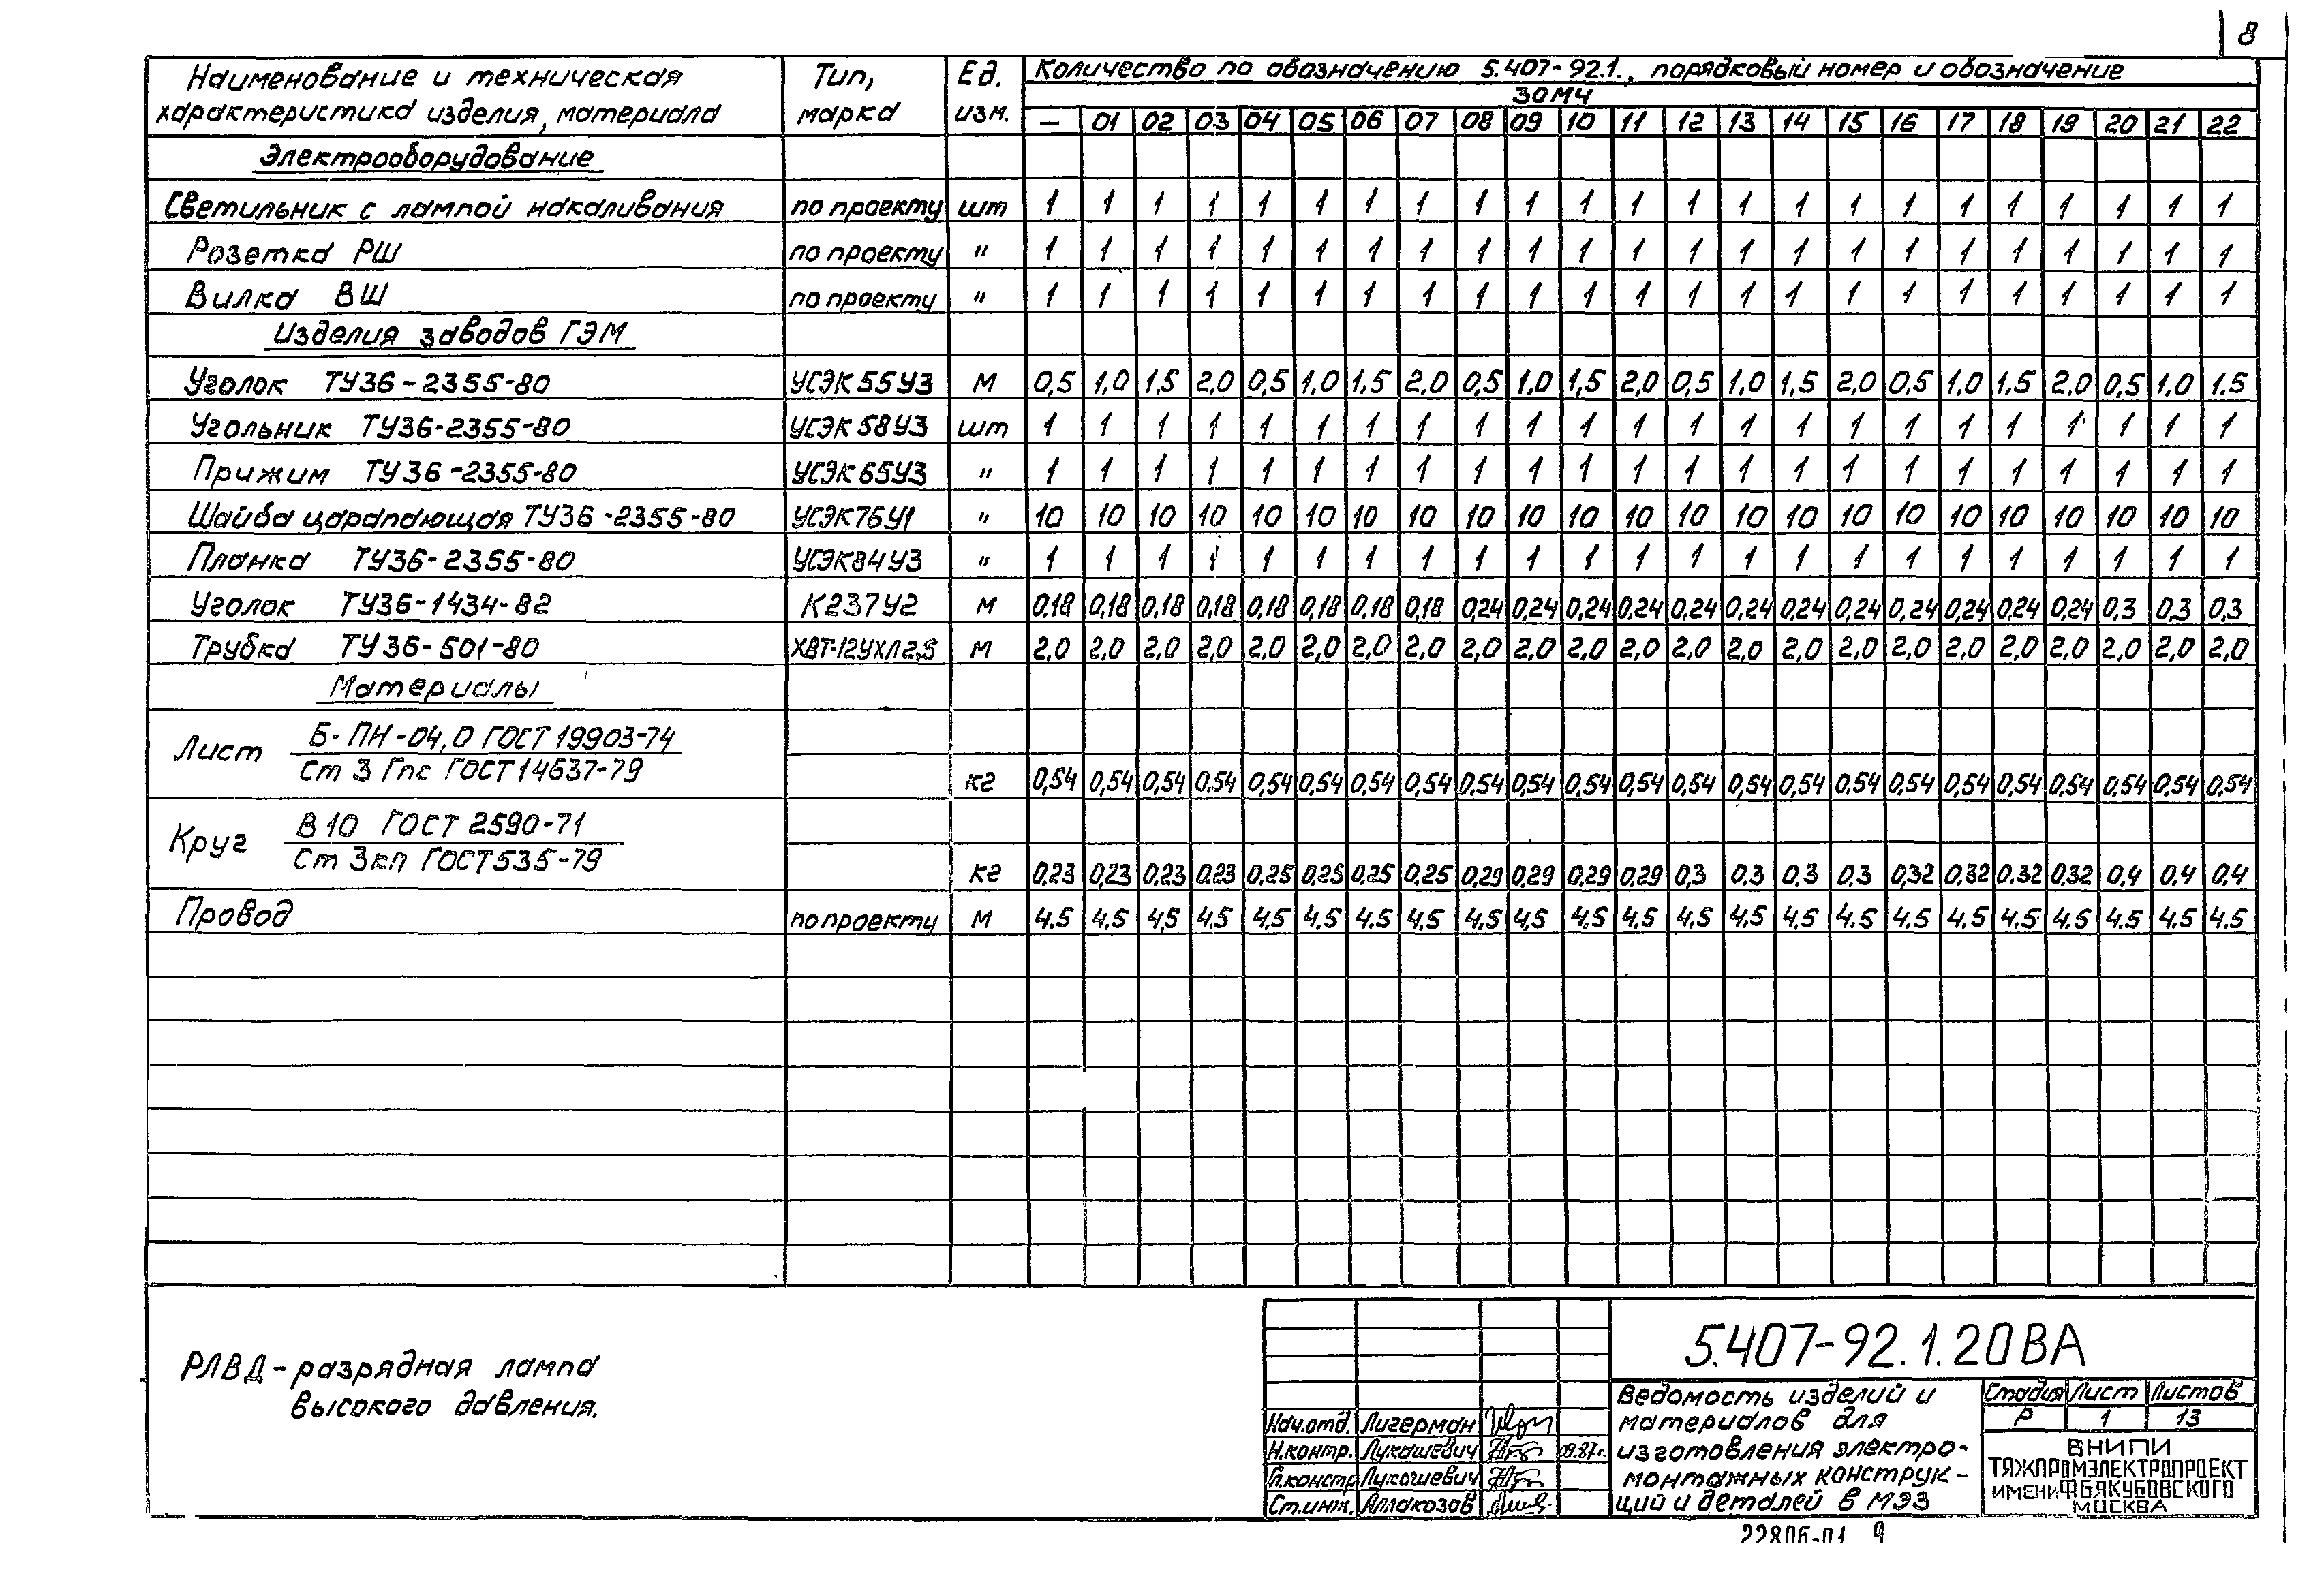 8
Наименование и техническая характеристика изделия, материала | Тип, марка | Ед. изм. | Количество по обозначению 5.407-92.1., порядковый номер и обозначение
30МЧ
— 01 02 03 04 05 06 07 08 09 10 11 12 13 14 15 16 17 18 19 20 21 22
Электрооборудование
Светильник с лампой накаливания по проекту шт 1 1 1 1 1 1 1 1 1 1 1 1 1 1 1 1 1 1 1 1 1 1 1
Розетка РШ по проекту " 1 1 1 1 1 1 1 1 1 1 1 1 1 1 1 1 1 1 1 1 1 1 1
Вилка ВШ по проекту " 1 1 1 1 1 1 1 1 1 1 1 1 1 1 1 1 1 1 1 1 1 1 1
Изделия заводов ГЭМ
Уголок ТУ36-2355-80 УСЭК55У3 м 0,5 1,0 1,5 2,0 0,5 1,0 1,5 2,0 0,5 1,0 1,5 2,0 0,5 1,0 1,5 2,0 0,5 1,0 1,5 2,0 0,5 1,0 1.5
Угольник ТУ36-2355-80 УСЭК58У3 шт 1 1 1 1 1 1 1 1 1 1 1 1 1 1 1 1 1 1 1 1 1 1 1
Прижим ТУ36-2355-80 УСЭК65У3 " 1 1 1 1 1 1 1 1 1 1 1 1 1 1 1 1 1 1 1 1 1 1 1
Шайба царапающая ТУ36-2355-80 УСЭК76У1 " 10 10 10 10 10 10 10 10 10 10 10 10 10 10 10 10 10 10 10 10 10 10 10
Планка ТУ36-2355-80 УСЭК84У3 " 1 1 1 1 1 1 1 1 1 1 1 1 1 1 1 1 1 1 1 1 1 1 1
Уголок ТУ36-1434-82 К237У2 м 0,18 0,18 0,18 0,18 0,18 0,18 0,18 0,18 0,24 0,24 0,24 0,24 0,24 0,24 0,24 0,24 0,24 0,24 0,24 0,24 0,3 0,3 0,3
Трубка ТУ36-501-80 ХВТ-12УХЛ2,5 м 2,0 2,0 2,0 2,0 2,0 2,0 2,0 2,0 2,0 2,0 2,0 2,0 2,0 2,0 2,0 2,0 2,0 2,0 2,0 2,0 2,0 2,0 2,0
Материалы
Лист Б-ПН-04,0 ГОСТ 19903-74
Ст 3 Гпс ГОСТ 14637-79 кг 0,54 0,54 0,54 0,54 0,54 0,54 0,54 0,54 0,54 0,54 0,54 0,54 0,54 0,54 0,54 0,54 0,54 0,54 0,54 0,54 0,54 0,54 0,54
Круг В10 ГОСТ 2590-71
Ст 3кп ГОСТ 535-79 кг 0,23 0,23 0,23 0,23 0,25 0,25 0,25 0,25 0,29 0,29 0,29 0,29 0,3 0,3 0,3 0,3 0,32 0,32 0,32 0,32 0,4 0,4 0,4
Провод по проекту м 4,5 4,5 4,5 4,5 4,5 4,5 4,5 4,5 4,5 4,5 4,5 4,5 4,5 4,5 4,5 4,5 4,5 4,5 4,5 4,5 4,5 4,5 4,5
РЛВД-разрядная лампа
высокого давления.
5.407-92.1.20ВА
Нач.отд. Лигерман
Н.контр. Лукашевич 09.87г.
Гл.констр Лукашевич
Ст.инж. Аллакозов
Ведомость изделий и
материалов для
изготовления электро-
монтажных конструк-
ций и деталей в МЭЗ
Стадия Лист Листов
Р 1 13
ВНИПИ
ТЯЖПРОМЭЛЕКТРОПРОЕКТ
ИМЕНИ Ф.Б.ЯКУБОВСКОГО
МОСКВА
22806-01 9